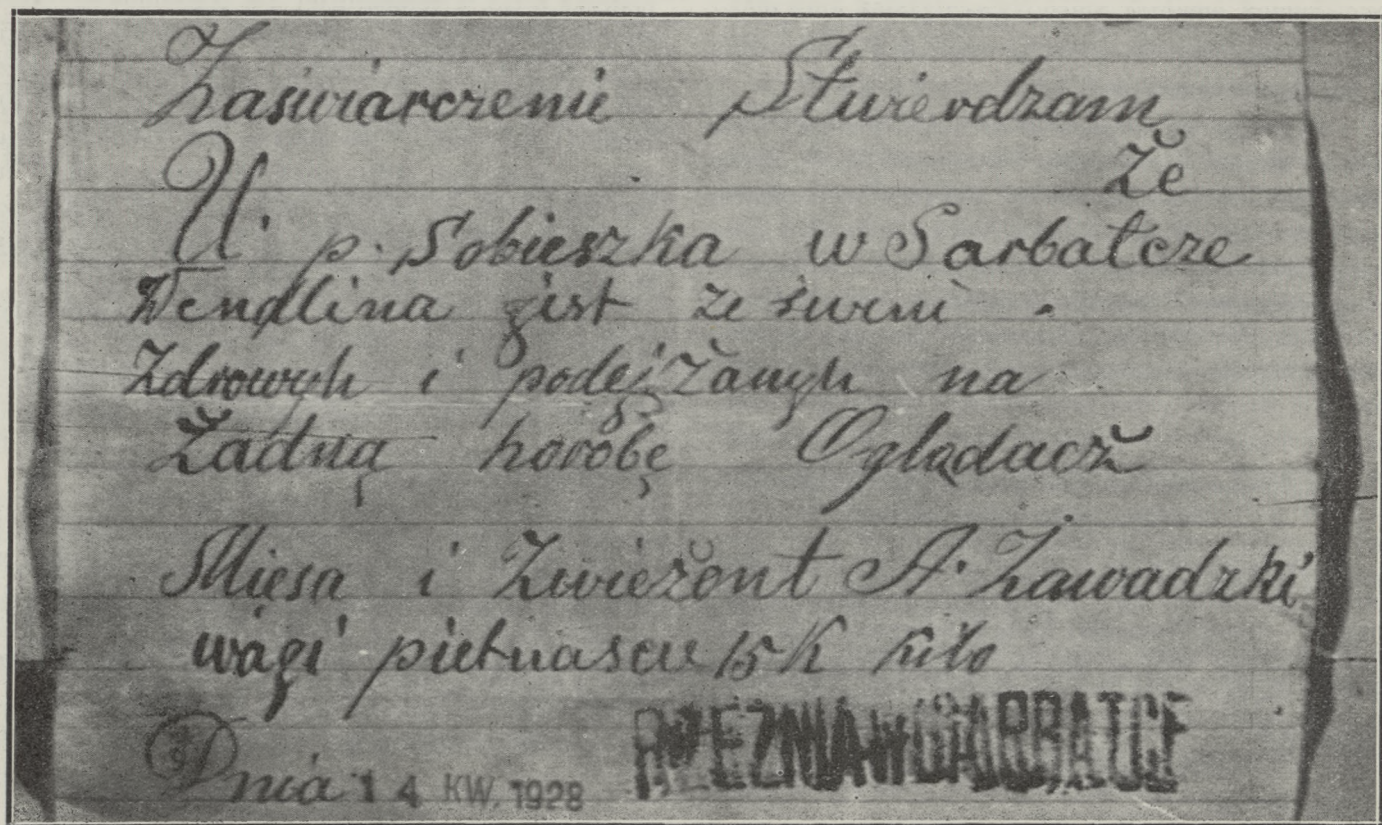 Zaswiarczenie Stwierdzam
że
U. p. Sobieszka w Sarbatcze
Wendlina jist ze swini
Zdrowyh i podejżanyh na
Żadną horobę Oglądacż
Miesa i Zwieżont A. Zawadzki
wagi pietnascie 15 K kilo
Dnia 14 KW. 1928
RZEZNIA W GARBATCE